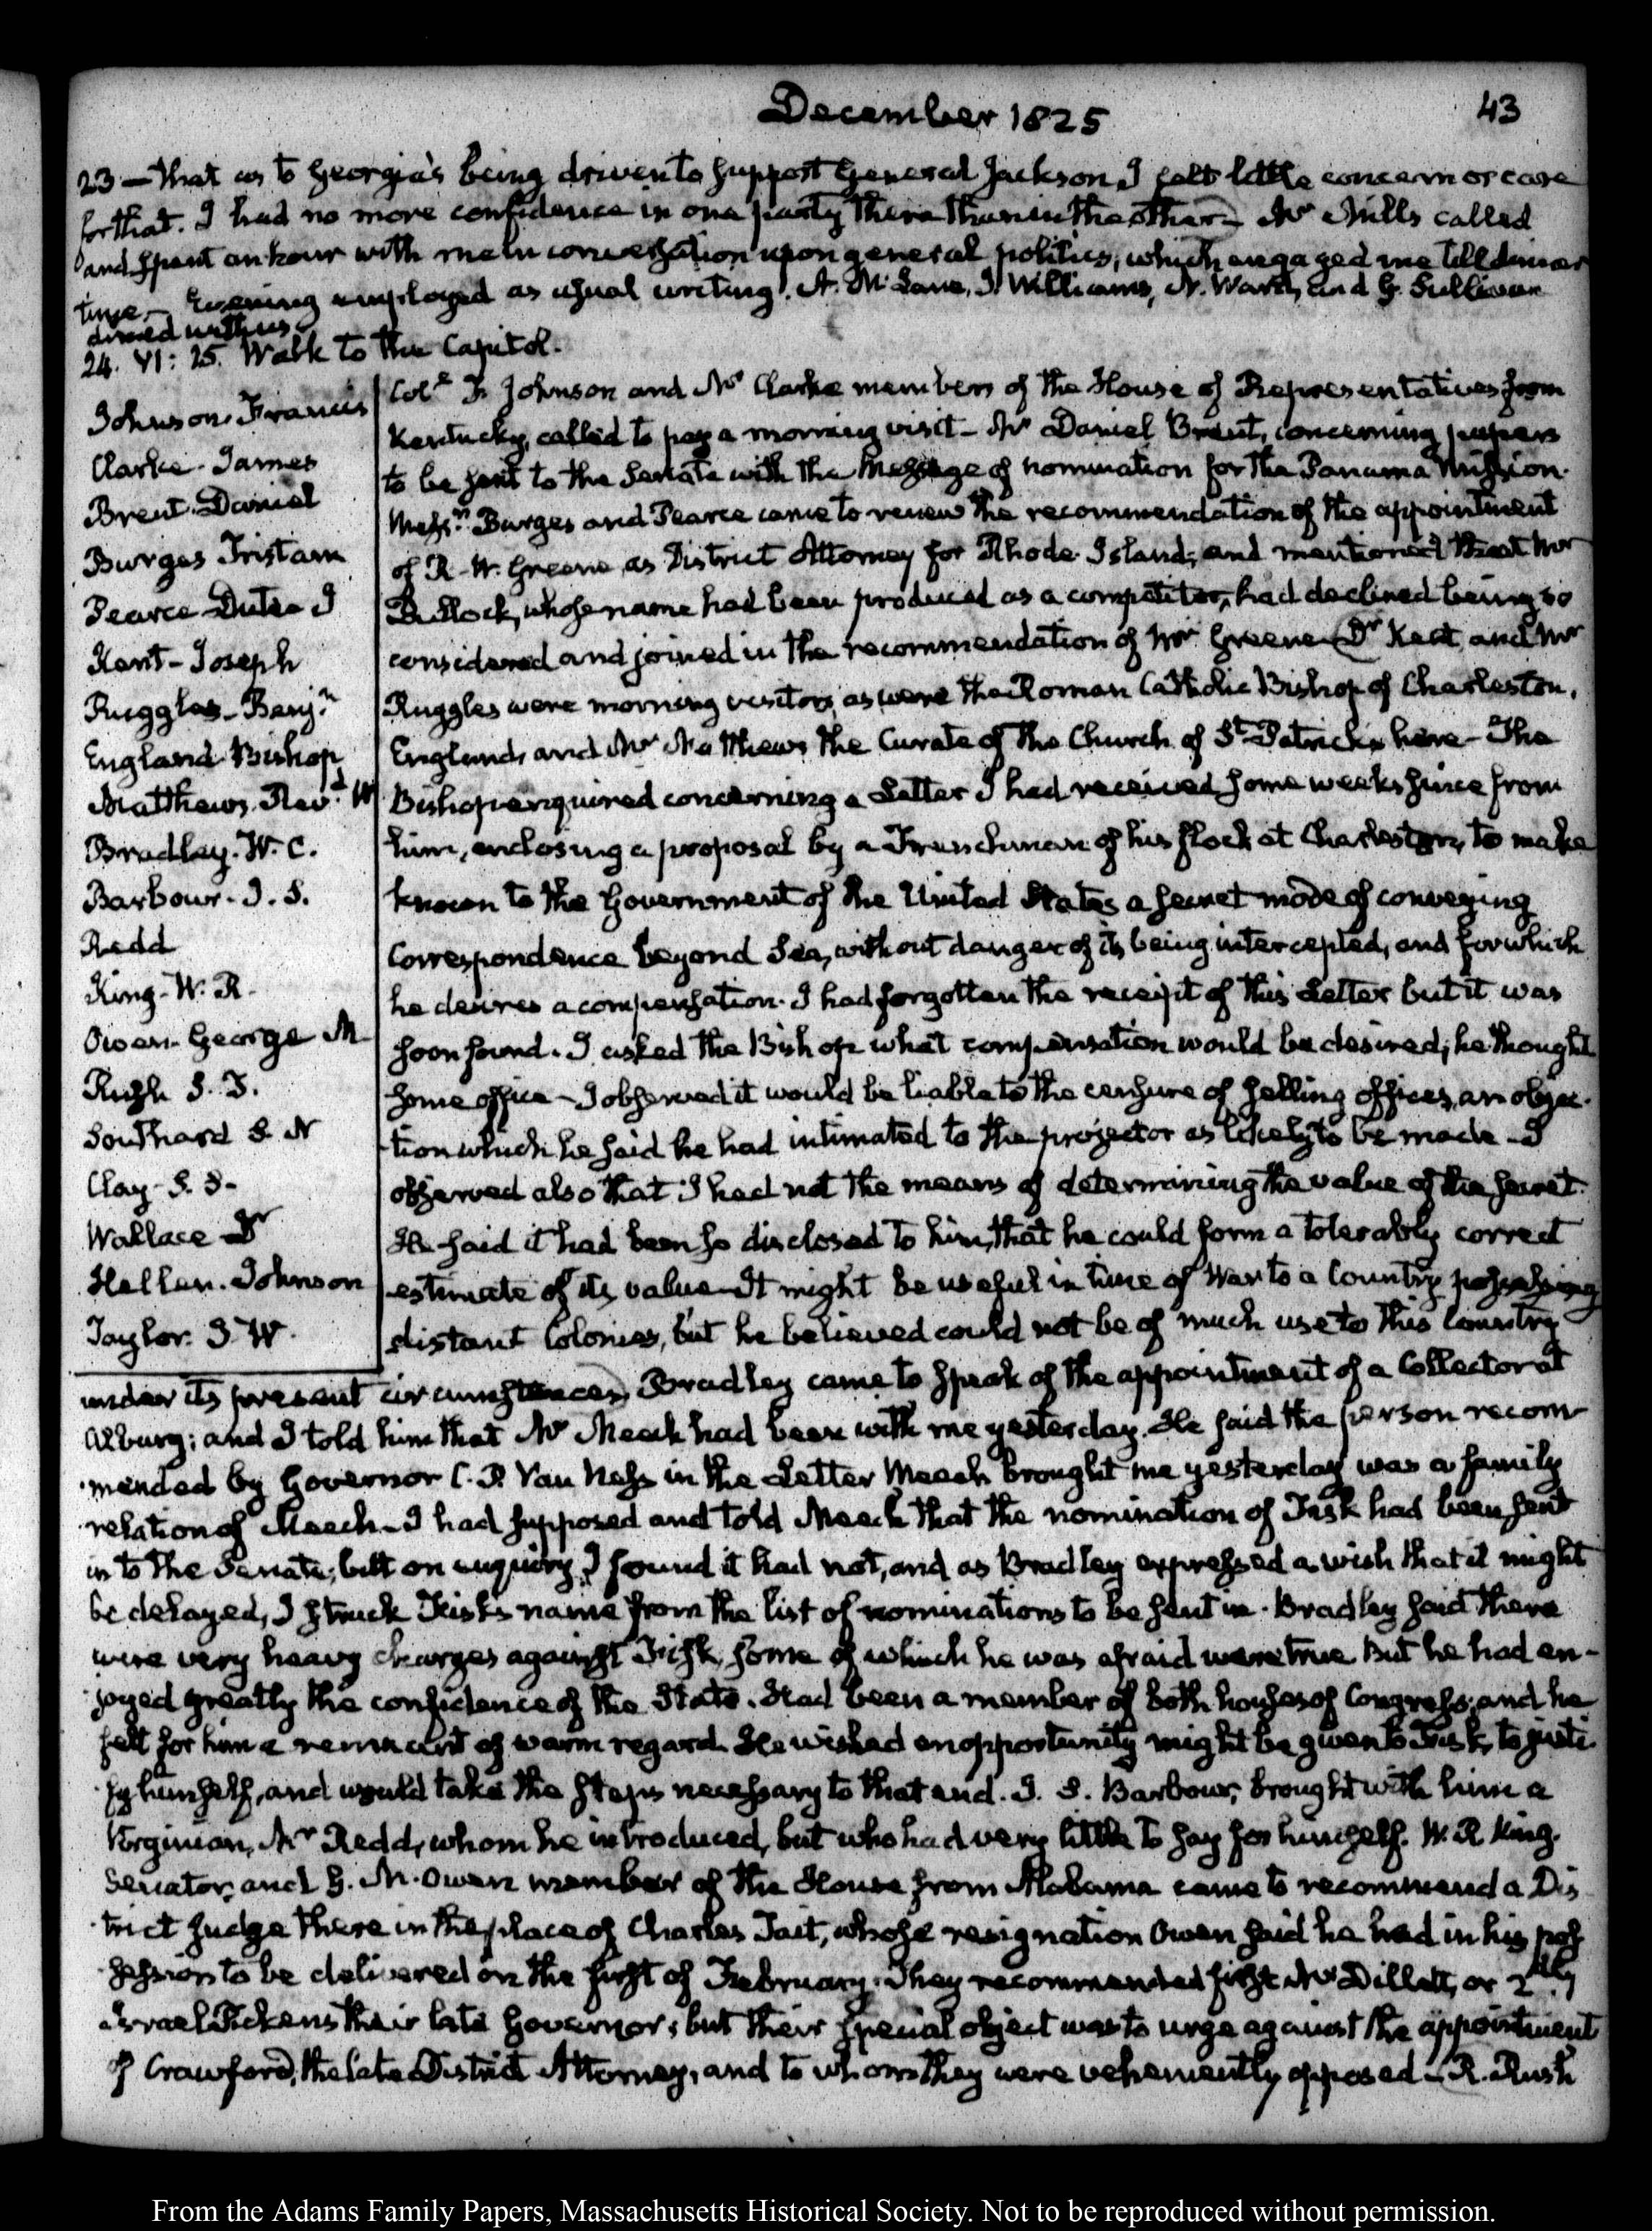 December 1825
43
23 — that as to Georgia's being driven to support General Jackson, I felt little concern or care
for that. I had no more confidence in one party there than in the other — Mr Mills called
and spent an hour with me in conversation upon general politics, which engaged me till dinner
time — Evening employed as usual writing. A. McLane, J. Williams, A. Ward, and G. Sullivan
dined with us.
24. VI: 25. Walk to the Capitol.
Johnson. Francis
Clarke. James
Brent. Daniel
Burges Tristam
Pearce Dutee J
Kent — Joseph
Ruggles — Benjn
England Bishop
Matthews. Revd W
Bradley. W. C.
Barbour. J. S.
Redd
King. W. R.
Owen. George M
Rush
Southard S
Clay
Wallace Dr
Hellen. Johnson
Taylor. J W.
Coll F. Johnson and Mr Clarke members of the House of Representatives from
Kentucky, called to pay a morning visit — Mr Daniel Brent, concerning papers
to be sent to the Senate with the Message of nomination for the Panama Mission.
Messrs Burges and Pearce came to renew the recommendation of the appointment
of R. W. Greene as District Attorney for Rhode Island; and mentioned that Mr
Bullock, whose name had been produced as a competitor, had declined being so
considered and joined in the recommendation of Mr Greene — Dr Kent, and Mr
Ruggles were morning visitors, as were the Roman Catholic Bishop of Charleston,
England, and Mr Matthews the Curate of the Church of St Patrick's here — The
Bishop enquired concerning a Letter I had received some weeks since from
him, enclosing a proposal by a Frenchman of his flock at Charleston, to make
known to the Government of the United States a secret mode of conveying
Correspondence beyond Sea, without danger of its being intercepted, and for which
he desires a compensation. I had forgotten the receipt of this Letter but it was
soon found. I asked the Bishop what compensation would be desired; he thought
some office — I observed it would be liable to the censure of selling offices, an objec-
tion which he said he had intimated to the projector as likely to be made — I
observed also that I had not the means of determining the value of the secret.
He said it had been so disclosed to him, that he could form a tolerably correct
estimate of its value — It might be useful in time of War to a Country possessing
distant Colonies, but he believed could not be of much use to this Country
under its present circumstances. Bradley came to speak of the appointment of a Collector at
Alburg; and I told him that Mr Meech had been with me yesterday. He said the person recom-
mended by Governor C. P. Van Ness in the Letter Meech brought me yesterday was a family
relation of Meech — I had supposed and told Meech that the nomination of Fisk had been sent
in to the Senate; but on enquiry I found it had not, and as Bradley expressed a wish that it might
be delayed, I struck Fisk's name from the list of nominations to be sent in. Bradley said there
were very heavy charges against Fisk, some of which he was afraid were true. But he had en-
joyed greatly the confidence of the State. Had been a member of both houses of Congress; and he
felt for him a remnant of warm regard. He wished an opportunity might be given to Fisk, to justi-
fy himself, and would take the steps necessary to that end. J. S. Barbour, brought with him a
Virginian, Mr Redd, whom he introduced, but who had very little to say for himself. W. R King
Senator, and G. M. Owen member of the House from Alabama came to recommend a Dis
trict Judge there in the place of Charles Tait, whose resignation Owen said he had in his pos
session to be delivered on the first of February. They recommended first Mr Dillett, or 2dly
Israel Pickens their late Governor; but their special object was to urge against the appointment
of Crawford, the late District Attorney, and to whom they were vehemently opposed — R. Rush
From the Adams Family Papers, Massachusetts Historical Society. Not to be reproduced without permission.